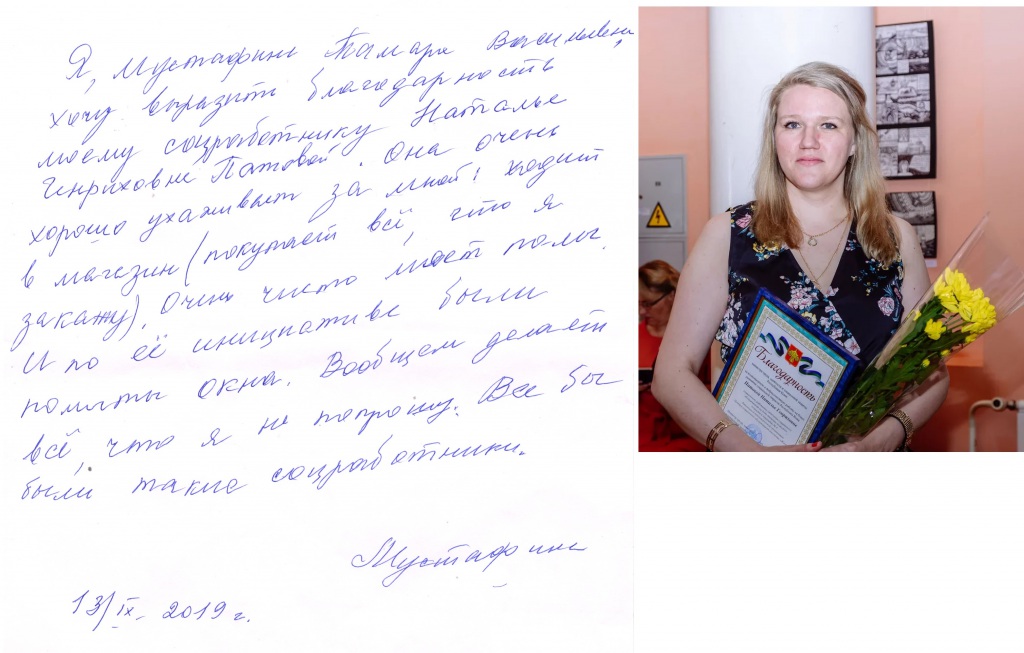 Я, Мустафина Тамара Васильевна,
хочу выразить благодарность
моему соцработнику Наталье
Генриховне Патовой. Она очень
хорошо ухаживает за мной: ходит
в магазин (покупает всё, что я
закажу). Очень чисто моет полы.
И по её инициативе были
помыты окна. Вообщем делает
всё, что я не попрошу. Все бы
были такие соцработники.
Мустафина
13/IX. 2019 г.
Благодарность